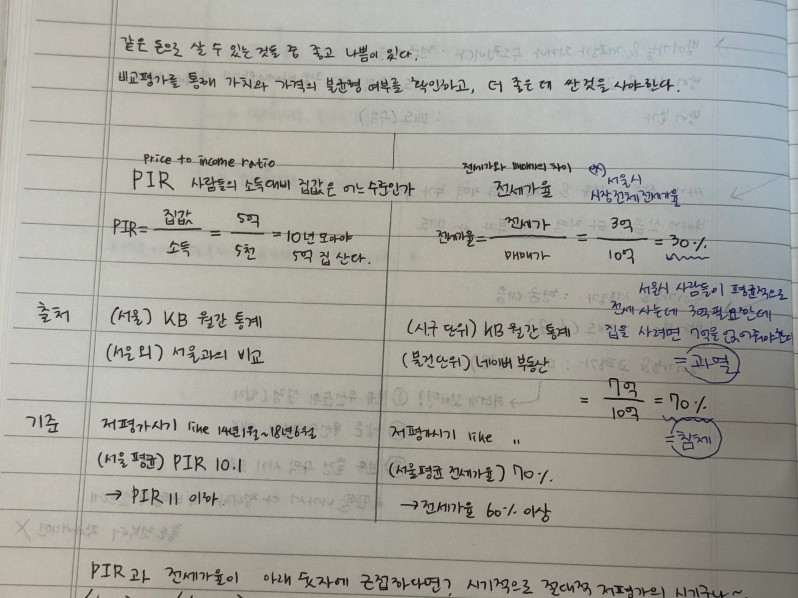 같은 돈으로 살 수 있는 것들 중 좋고 나쁨이 있다.
비교평가를 통해 가치와 가격의 불균형 여부를 확인하고, 더 좋은데 싼 것을 사야한다.
price to income ratio
PIR 사람들의 소득대비 집값은 어느 수준인가
PIR = 집값/소득 = 5억/5천 = 10년 모아야
5억 집 산다.
전세가와 매매가의 차이
전세가율
서울시
시장전체 전세가율
전세가율 = 전세가/매매가 = 3억/10억 = 30%
서울시 사람들이 평균적으로
전세 사는데 3억 필요한데
집을 사려면 7억을 더 얹어줘야한다
= 과열
출처
(서울) KB 월간 통계
(서울 외) 서울과의 비교
(시구 단위) KB 월간 통계
(물건단위) 네이버 부동산
= 7억/10억 = 70%
= 침체
기준
저평가시기 like 14년 1월~18년 6월
(서울 평균) PIR 10.1
→ PIR 11 이하
저평가시기 like 〃
(서울평균 전세가율) 70%
→ 전세가율 60% 이상
PIR과 전세가율이 아래 숫자에 근접하다면? 시기적으로 절대적 저평가의 시기구나~